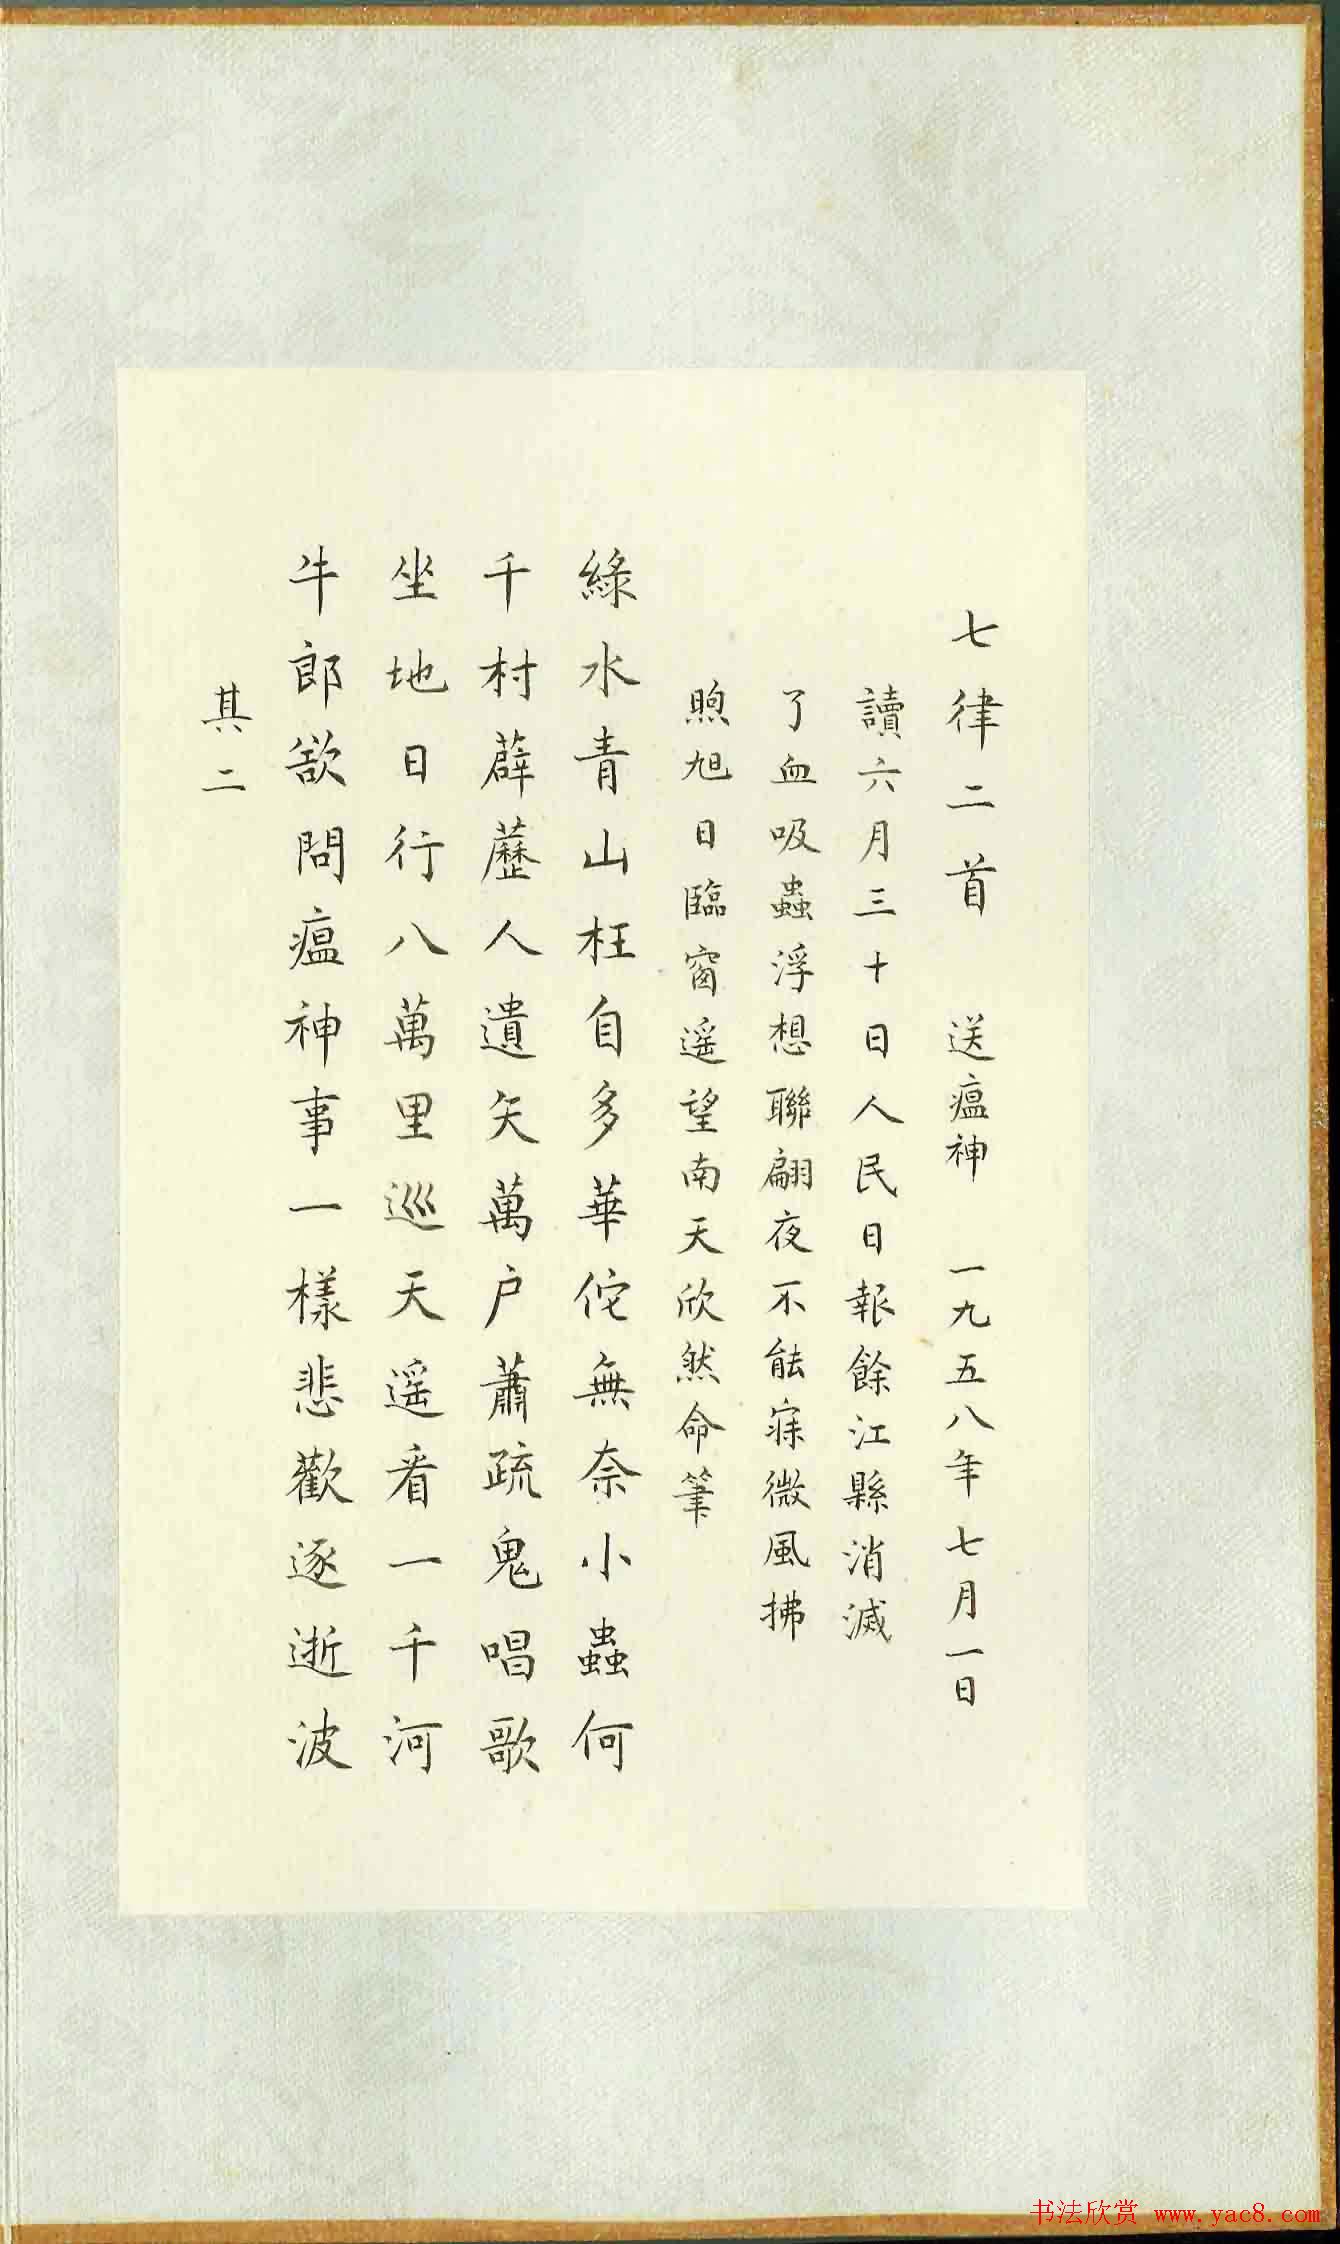 七律二首　送瘟神　一九五八年七月一日
讀六月三十日人民日報餘江縣消滅
了血吸蟲浮想聯翩夜不能寐微風拂
煦旭日臨窗遥望南天欣然命筆
綠水青山枉自多華佗無奈小蟲何
千村薜蘼人遺矢萬户蕭疏鬼唱歌
坐地日行八萬里巡天遥看一千河
牛郎欲問瘟神事一樣悲歡逐逝波
其二
书法欣赏 www.yac8.com